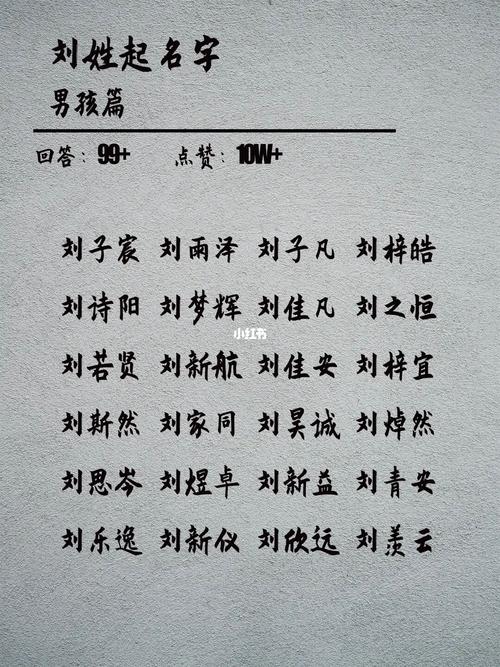 刘姓起名字
男孩篇
回答：99+ 点赞：10W+
刘子宸 刘雨泽 刘子凡 刘梓皓
刘诗阳 刘梦辉 刘佳凡 刘之恒
小红书
刘若贤 刘新航 刘佳安 刘梓宜
刘斯然 刘家同 刘昊诚 刘焯然
刘思岑 刘煜卓 刘新益 刘青安
刘乐逸 刘新仪 刘欣远 刘羡云